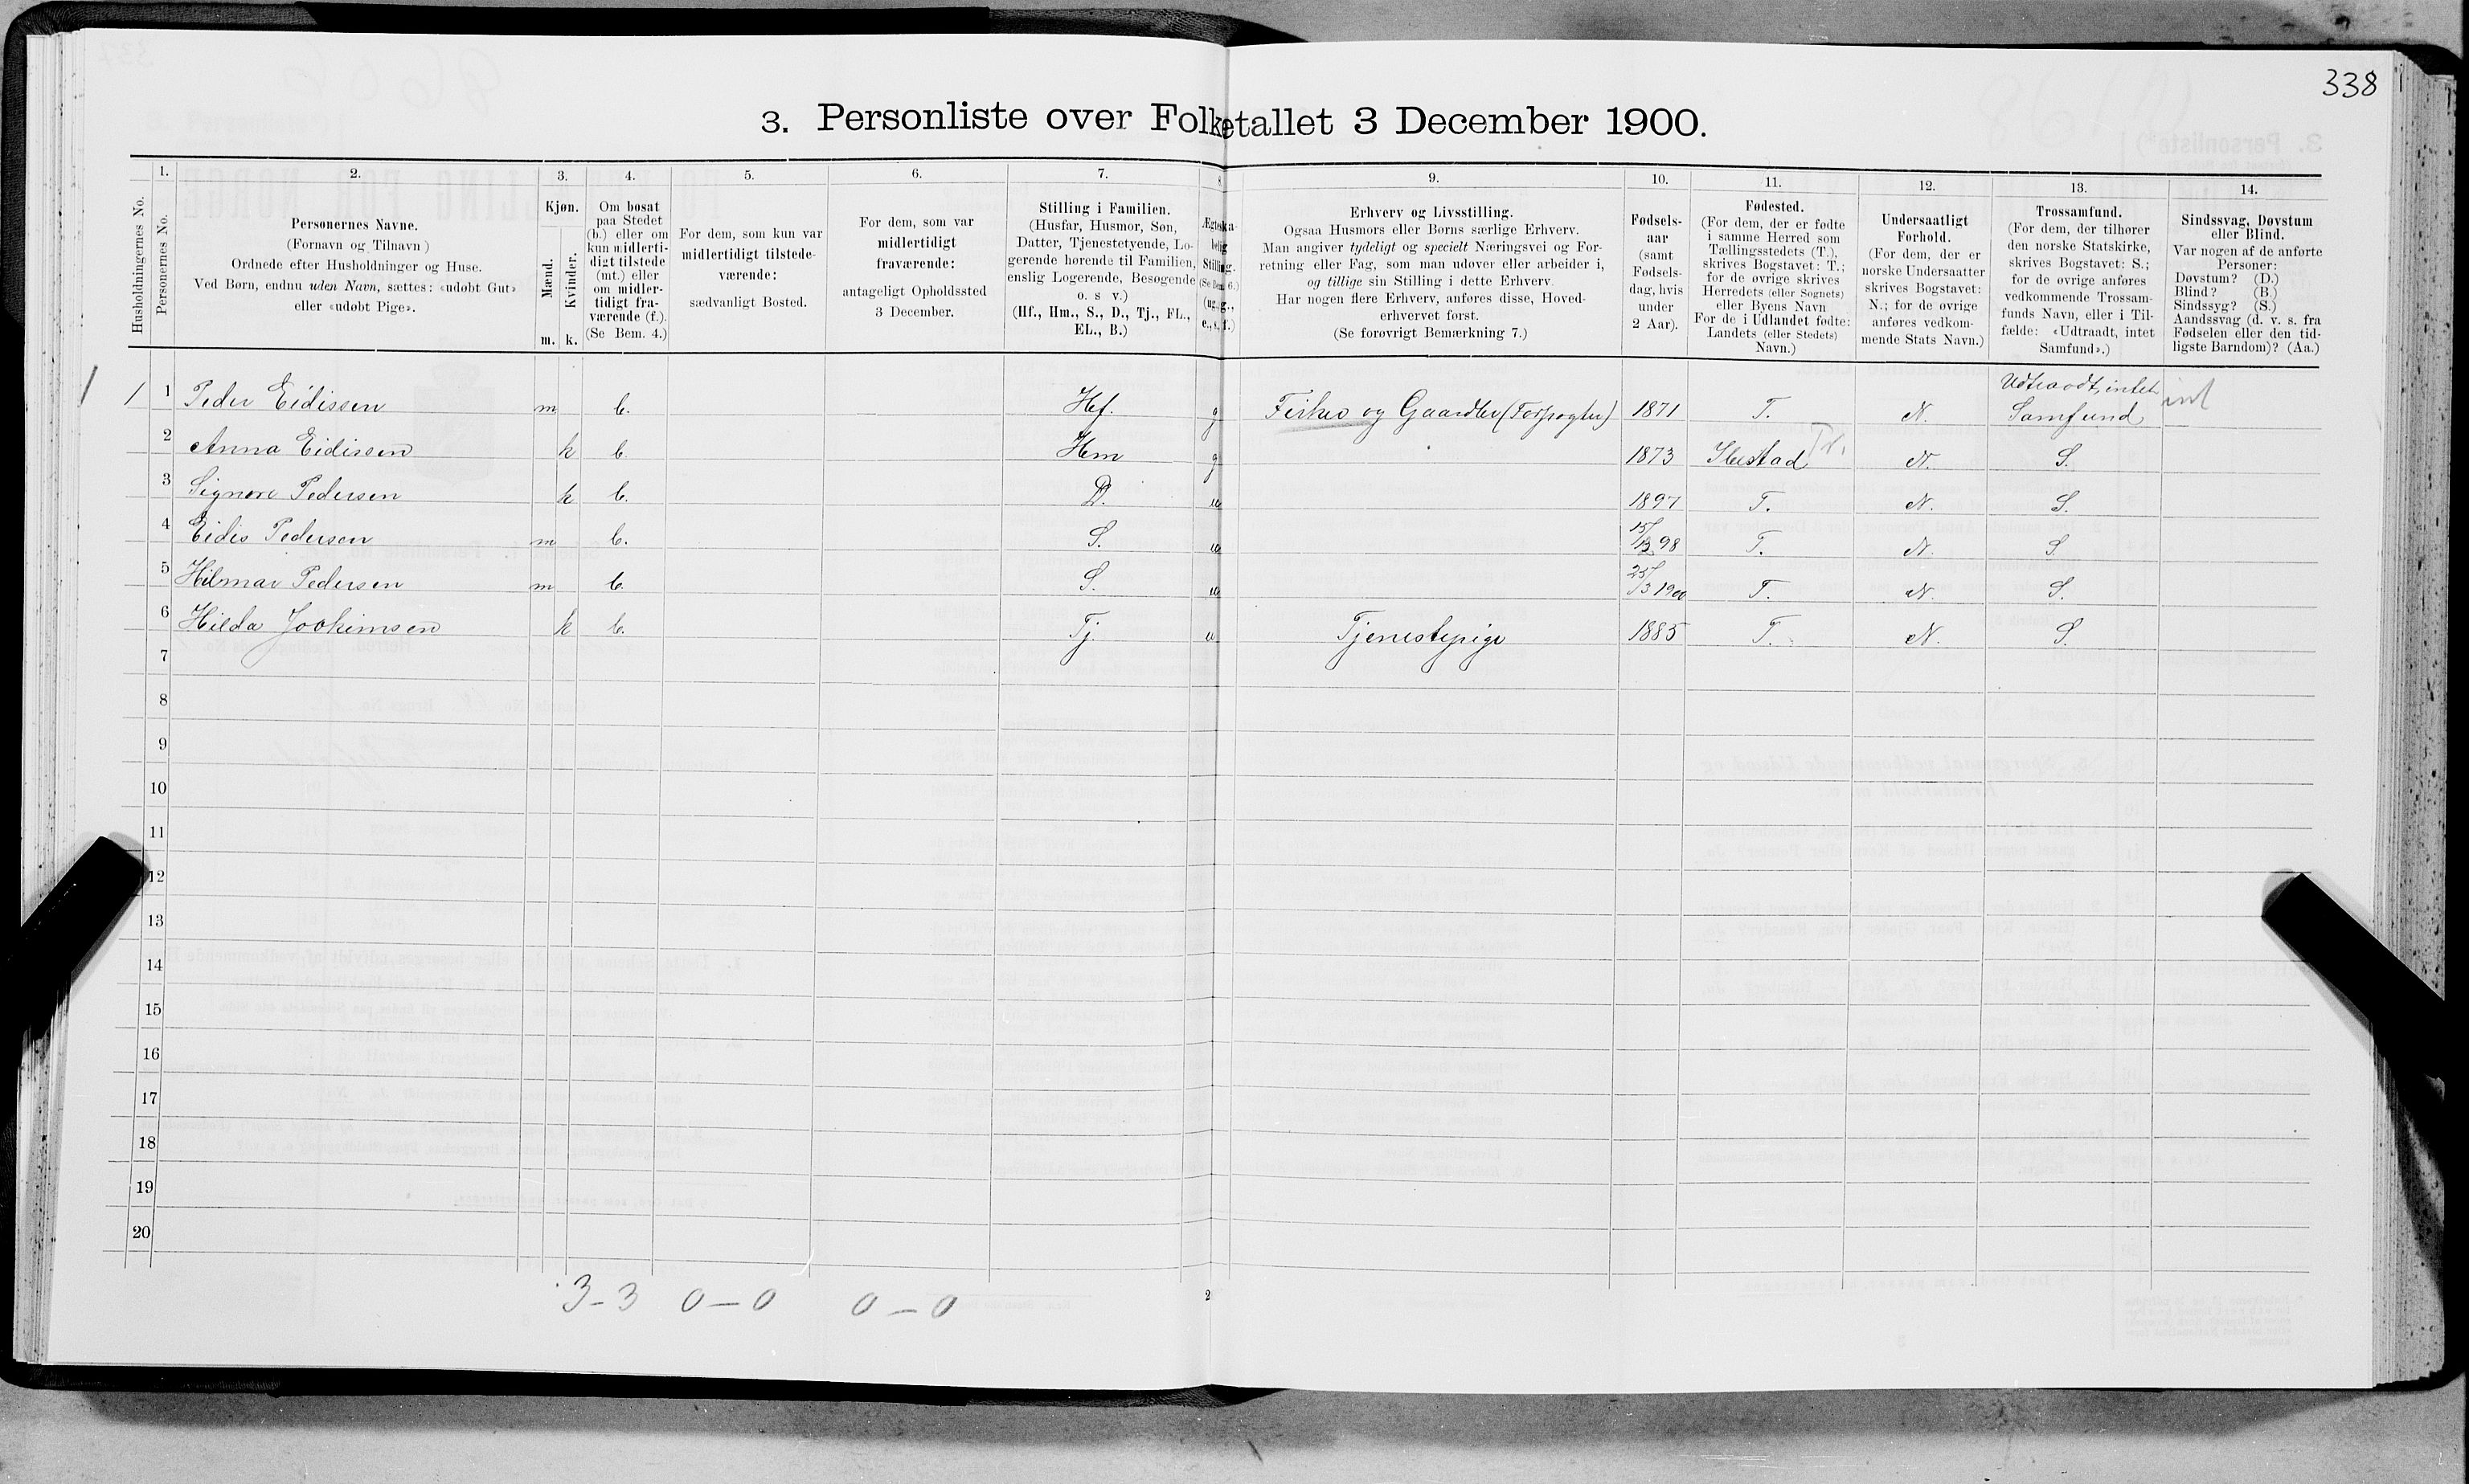 338
3. Personliste over Folketallet 3 December 1900.
1. 2. 3. 4. 5. 6. 7. 8. 9. 10. 11. 12. 13. 14.
Husholdningernes No.
Personernes No.
Personernes Navne.
(Fornavn og Tilnavn)
Ordnede efter Husholdninger og Huse.
Ved Børn, endnu uden Navn, sættes: «udøbt Gut»
eller «udøbt Pige».
Kjøn.
Mænd.
Kvinder.
m. k.
Om bosat
paa Stedet
(b.) eller om
kun midlerti-
digt tilstede
(mt.) eller
om midler-
tidigt fra-
værende (f.).
(Se Bem. 4.)
For dem, som kun var
midlertidigt tilstede-
værende:
sædvanligt Bosted.
For dem, som var
midlertidigt
fraværende:
antageligt Opholdssted
3 December.
Stilling i Familien.
(Husfar, Husmor, Søn,
Datter, Tjenestetyende, Lo-
gerende hørende til Familien,
enslig Logerende, Besøgende
o. s v.)
(Hf., Hm., S., D., Tj., FL.,
EL., B.)
Ægteska-
belig
Stilling.
(Se Bem. 6.)
(ug., g.,
e., s., f.)
Erhverv og Livsstilling.
Ogsaa Husmors eller Børns særlige Erhverv.
Man angiver tydeligt og specielt Næringsvei og For-
retning eller Fag, som man udøver eller arbeider i,
og tillige sin Stilling i dette Erhverv.
Har nogen flere Erhverv, anføres disse, Hoved-
erhvervet først.
(Se forøvrigt Bemærkning 7.)
Fødsels-
aar
(samt
Fødsels-
dag, hvis
under
2 Aar).
Fødested.
(For dem, der er fødte
i samme Herred som
Tællingsstedets (T.),
skrives Bogstavet: T.;
for de øvrige skrives
Herredets (eller Sognets)
eller Byens Navn
For de i Udlandet fødte:
Landets (eller Stedets)
Navn.)
Undersaatligt
Forhold.
(For dem, der er
norske Undersaatter
skrives Bogstavet:
N.; for de øvrige
anføres vedkom-
mende Stats Navn.)
Trossamfund.
(For dem, der tilhører
den norske Statskirke,
skrives Bogstavet: S.;
for de øvrige anføres
vedkommende Trossam-
funds Navn, eller i Til-
fælde: «Udtraadt, intet
Samfund».)
Sindssvag, Døvstum
eller Blind.
Var nogen af de anførte
Personer:
Døvstum? (D.)
Blind? (B.)
Sindssyg? (S.)
Aandssvag (d. v. s. fra
Fødselen eller den tid-
ligste Barndom)? (Aa.)
1 1 1 Peder Eidissen m b. Hf. g Fisker og Gaardbr (Forpagter) 1871 T. N. Udtraadt, intet Samfund int
2 Anna Eidissen k b. Hm g 1873 Ibestad Tr. N. S.
3 Signore Pedersen k b. D. u 1897 T. N. S.
4 Eidis Pedersen m b. S. u 15/12 98 T. N. S.
5 Hilmar Pedersen m b. S. u 25/3 1900 T. N. S.
6 Hilda Jookimsen k b. Tj. u Tjenestepige 1885 T. N. S.
7
8
9
10
11
12
13
14
15
16
17
18
19
20
3-3 0-0 0-0
2